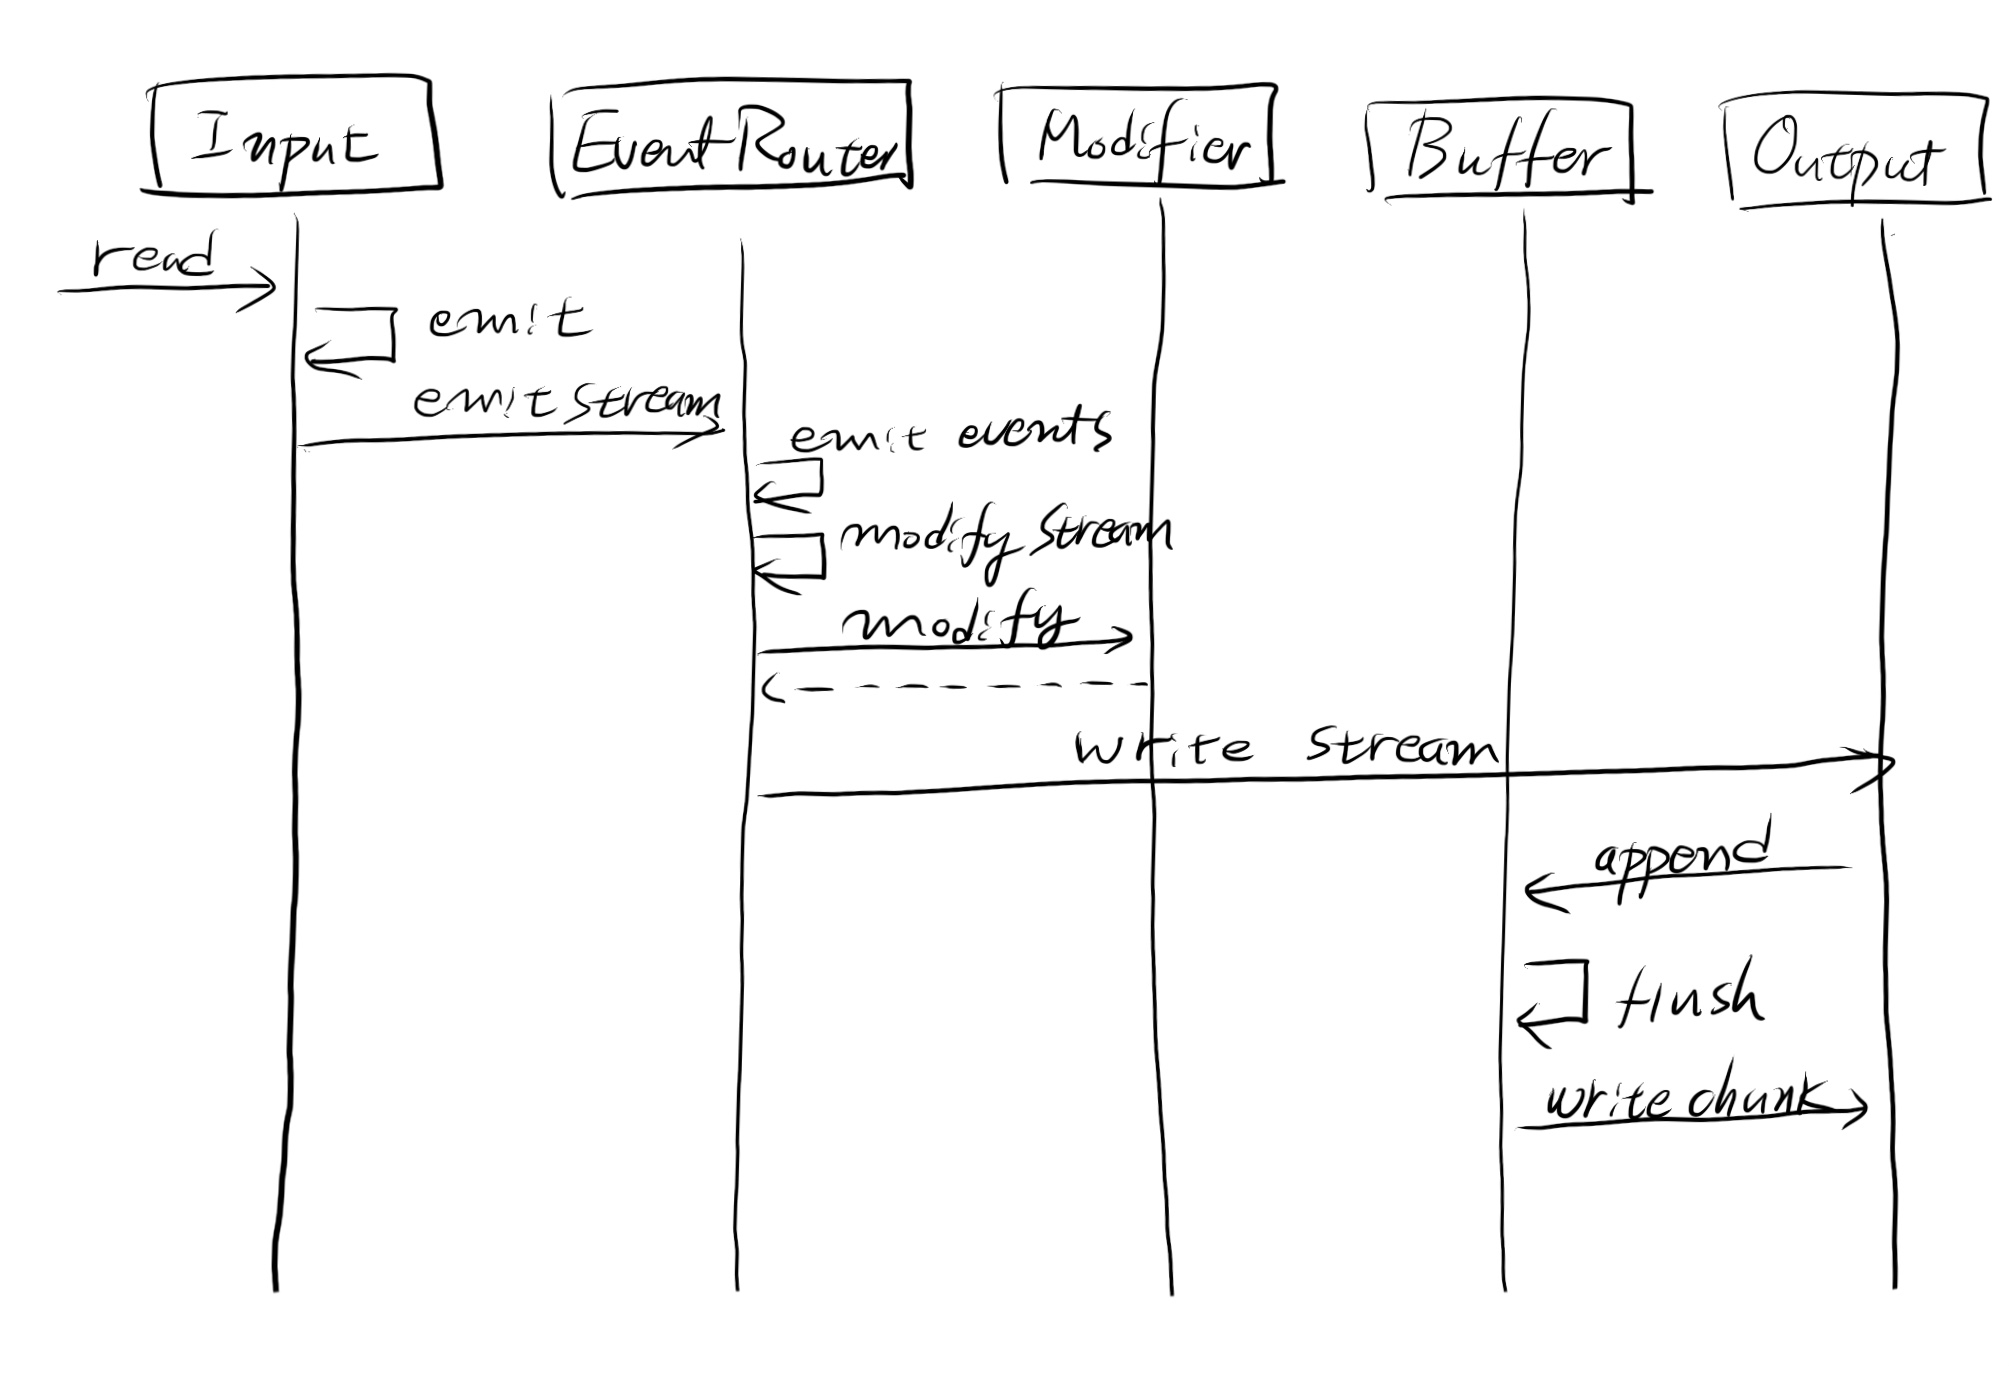 Input
EventRouter
Modifier
Buffer
Output
read
emit
emit stream
emit events
modify stream
modify
write stream
append
flush
write chunk